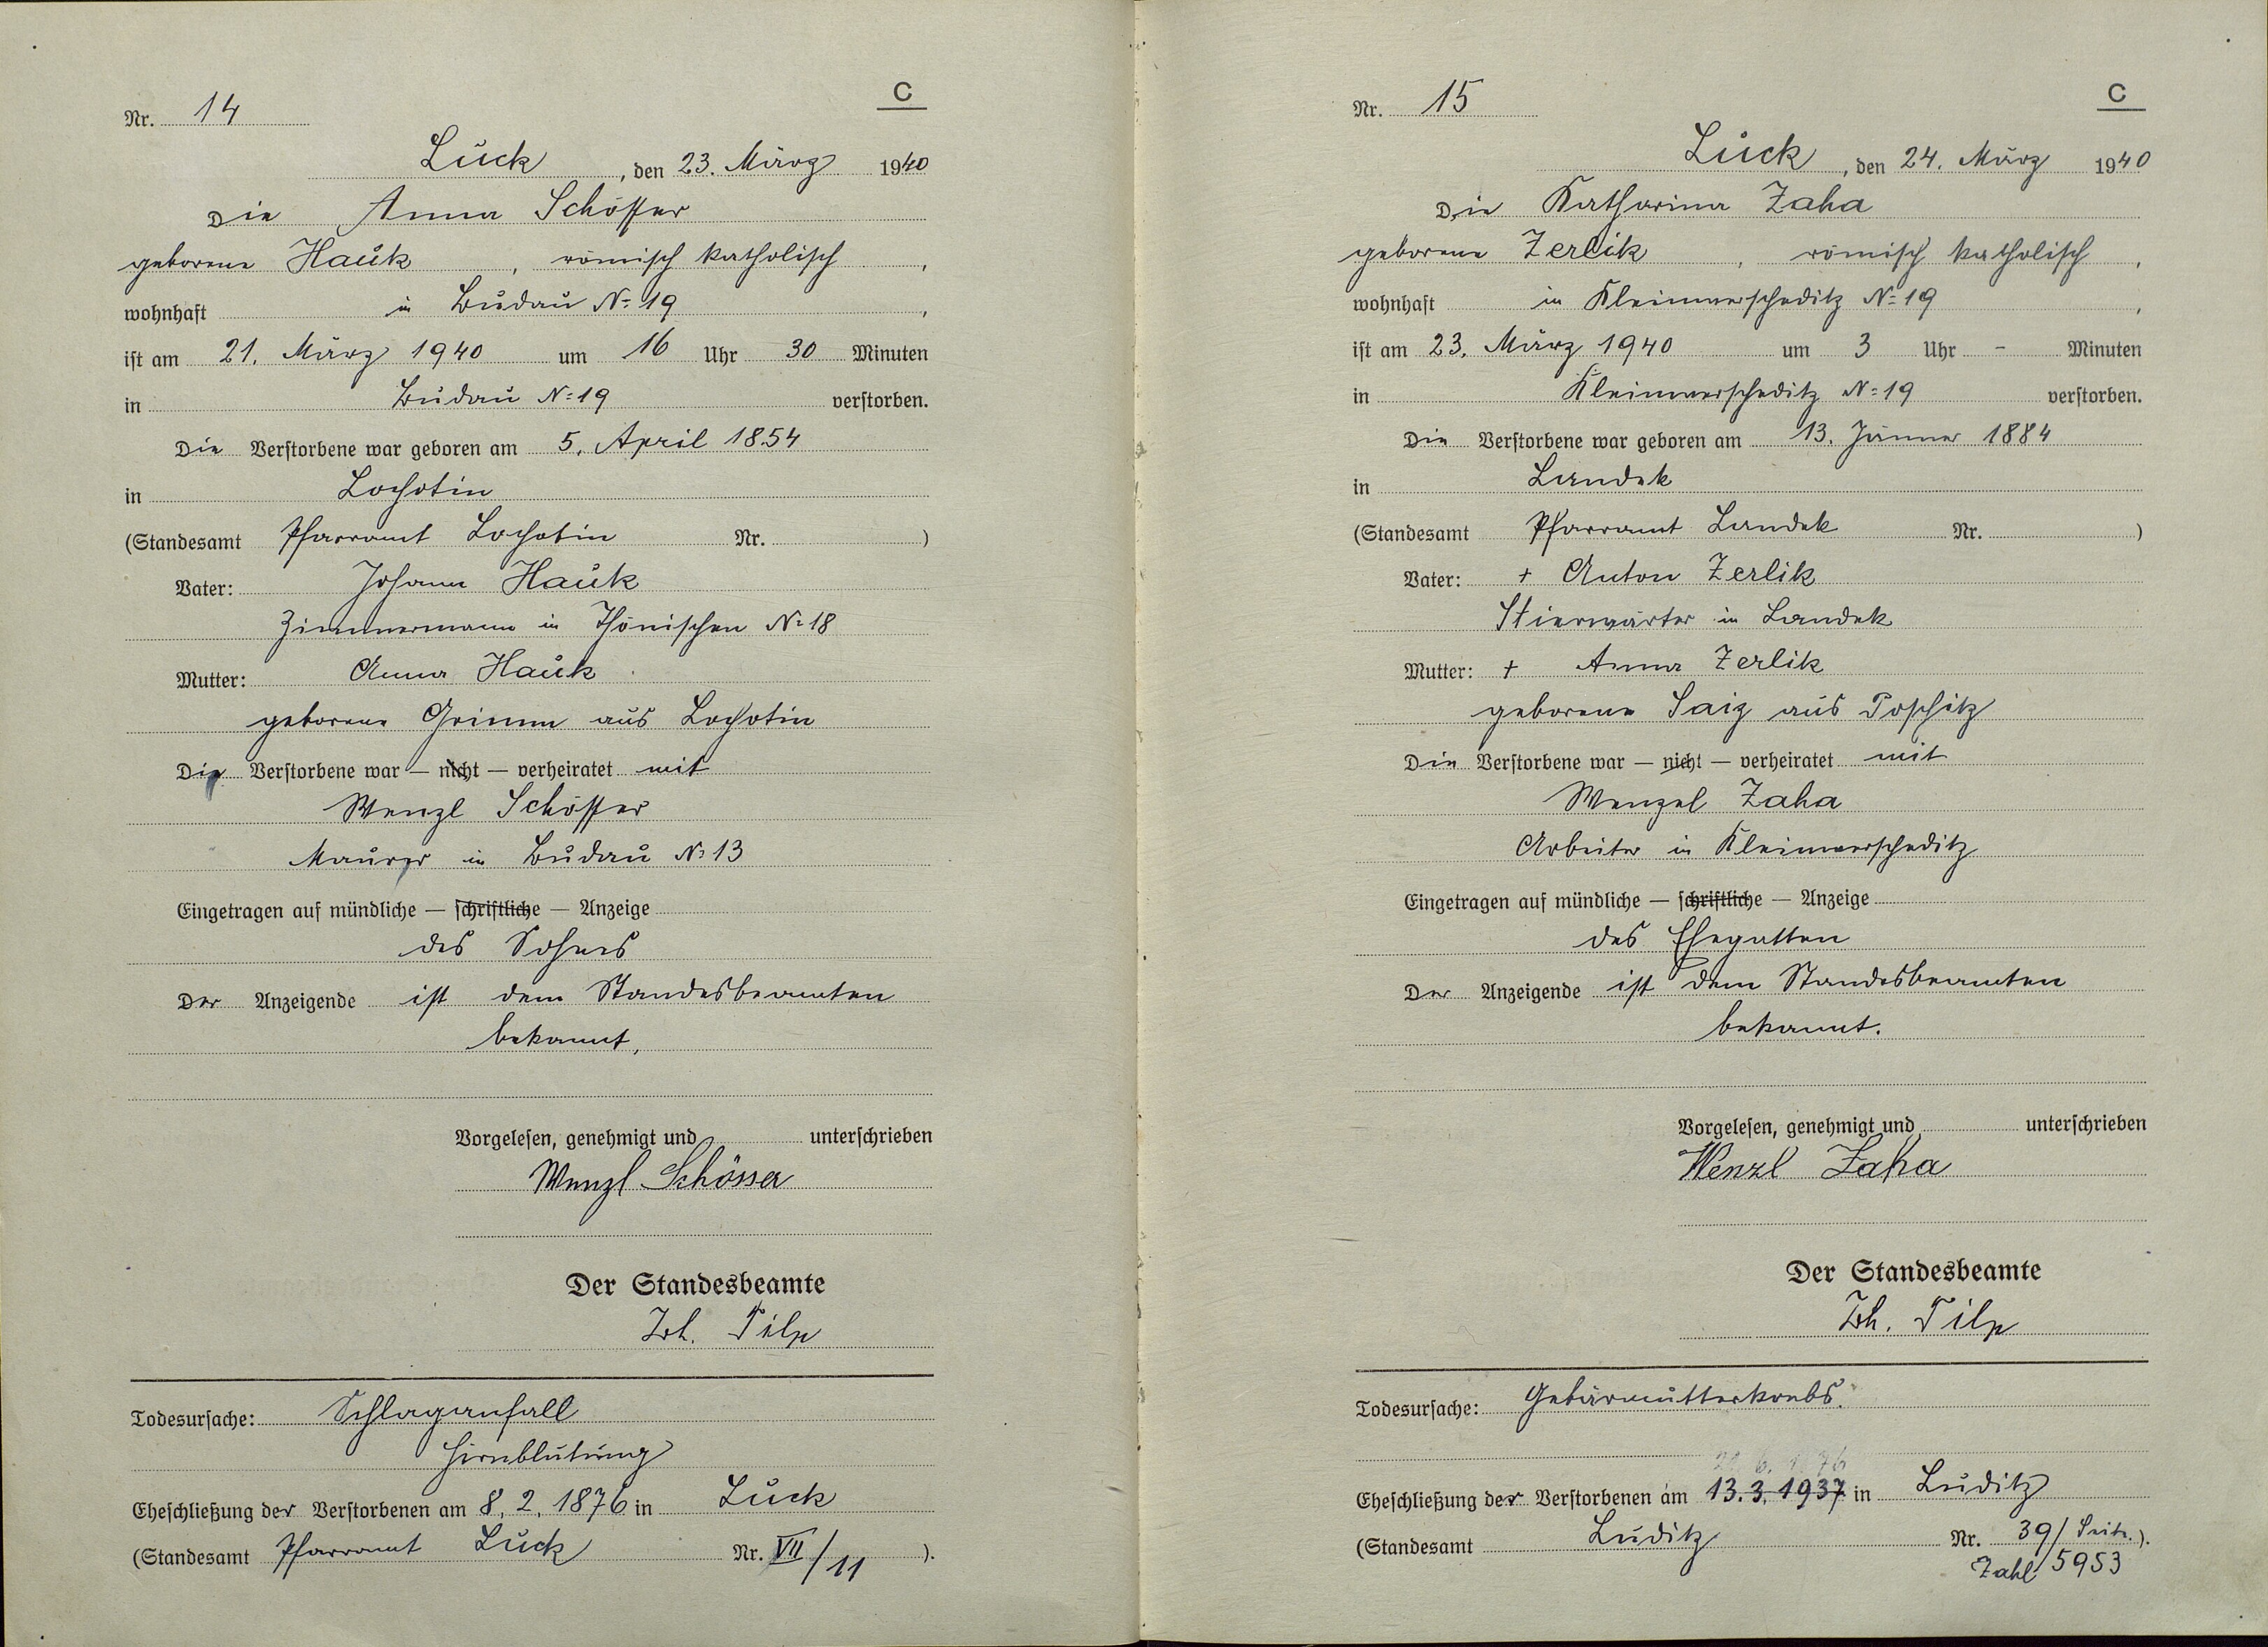 C
Nr. 14
Luck, den 23. März 1940
Die Anna Schösser
geborene Hauk, römisch katholisch,
wohnhaft in Budau № 19,
ist am 21. März 1940 um 16 Uhr 30 Minuten
in Budau № 19 verstorben.
Die Verstorbene war geboren am 5. April 1854
in Lochotin
(Standesamt Pfarramt Lochotin Nr. )
Vater: Johann Hauk
Zimmermann in Thönischen № 18
Mutter: Anna Hauk
geborene Grimm aus Lochotin
Die Verstorbene war — nicht — verheiratet mit
Wenzl Schösser
Maurer in Budau № 13
Eingetragen auf mündliche — schriftliche — Anzeige
des Sohnes
Der Anzeigende ist dem Standesbeamten
bekannt.
Vorgelesen, genehmigt und unterschrieben
Wenzl Schösser
Der Standesbeamte
Joh. Tilp
Todesursache: Schlaganfall
Hirnblutung
Eheschließung der Verstorbenen am 8. 2. 1876 in Luck
(Standesamt Pfarramt Luck Nr. VII/11 ).
C
Nr. 15
Luck, den 24. März 1940
Die Katharina Zaha
geborene Zerlik, römisch katholisch,
wohnhaft in Kleinwerscheditz № 19,
ist am 23. März 1940 um 3 Uhr - Minuten
in Kleinwerscheditz № 19 verstorben.
Die Verstorbene war geboren am 13. Jänner 1884
in Landek
(Standesamt Pfarramt Landek Nr. )
Vater: + Anton Zerlik
Stierwärter in Landek
Mutter: + Anna Zerlik
geborene Saiz aus Poschitz
Die Verstorbene war — nicht — verheiratet mit
Wenzel Zaha
Arbeiter in Kleinwerscheditz
Eingetragen auf mündliche — schriftliche — Anzeige
des Ehegatten
Der Anzeigende ist dem Standesbeamten
bekannt.
Vorgelesen, genehmigt und unterschrieben
Wenzl Zaha
Der Standesbeamte
Joh. Tilp
Todesursache: Gebärmutterkrebs.
Eheschließung der Verstorbenen am 13. 3. 1937 in Luditz
(Standesamt Luditz Nr. 39/Seite.).
Zahl 5953